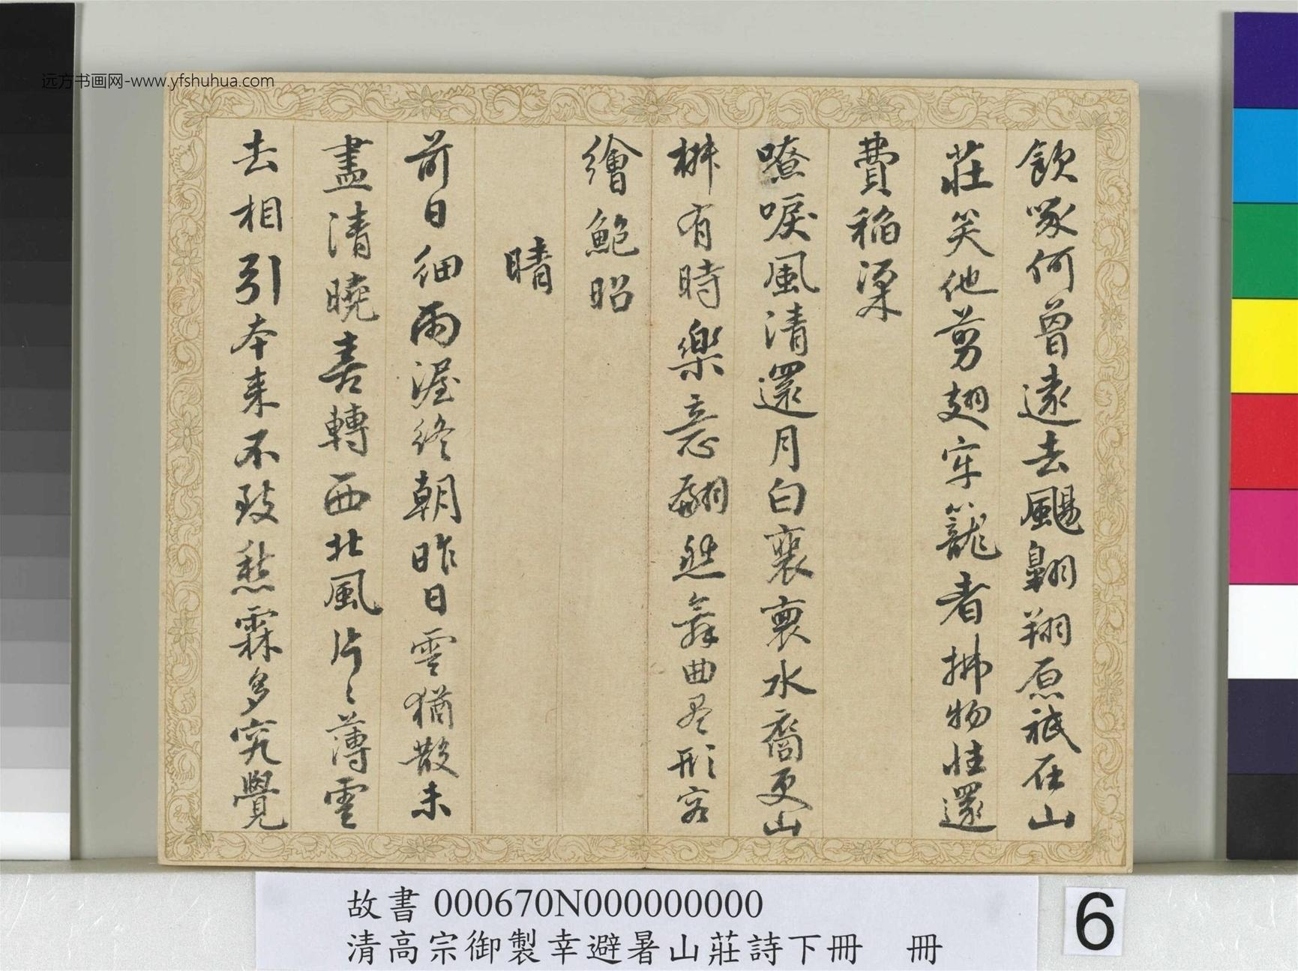 远方书画网-www.yfshuhua.com
飲啄何曾遠去颺翺翔原祇在山
莊笑他剪翅牢籠者拂物性還
費稻粱
嘹唳風清還月白裊裊水裔更山
椒有時樂意翩然舞曲盡形容
繪鮑昭
晴
前日細雨渥終朝昨日雲猶散未
盡清曉喜轉西北風片〻薄雲
去相引本來不致愁霖多究覺
故書 000670N000000000
清高宗御製幸避暑山莊詩下冊 冊
6